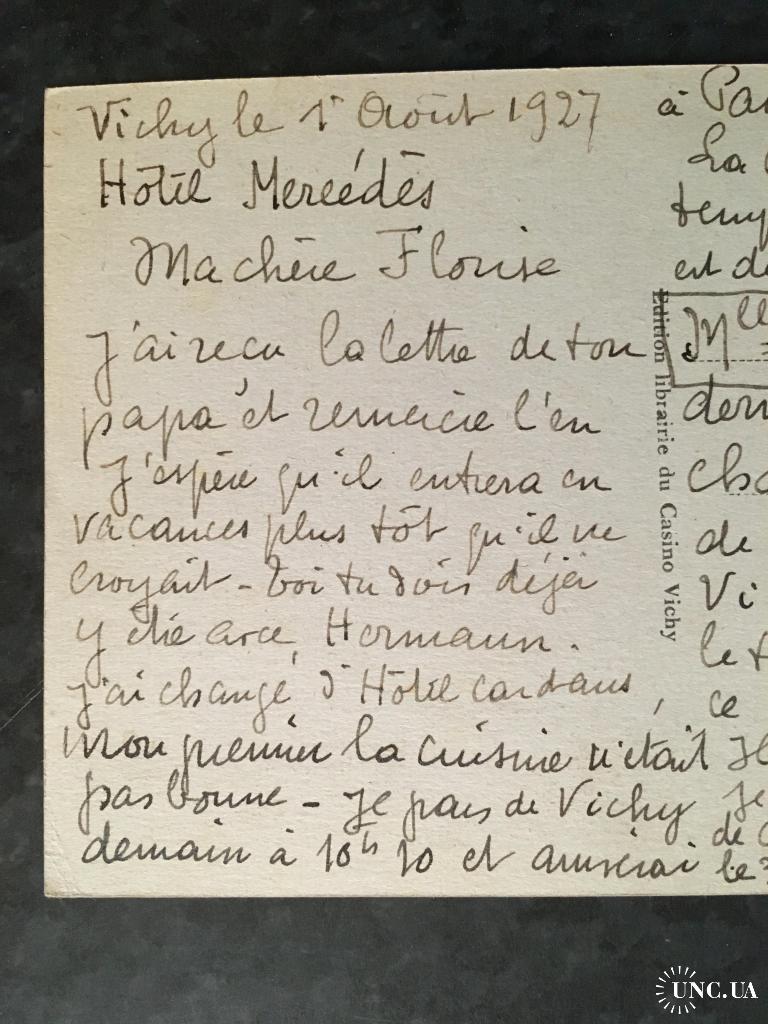 Vichy le 1r Août 1927
Hôtel Mercédès
Ma chère Florise
J'ai recu la lettre de ton
papa et remercie l'en
J'espère qu'il entrera en
vacances plus tôt qu'il ne
croyait - toi tu dois déjà
y être avec Hermann.
j'ai changé d'Hôtel car dans
mon premier la cuisine n'était
pas bonne - Je pars de Vichy
demain à 10h 10 et arriverai
à
La
est
Mlle
de
Vi
le
ce
Je
de
le
Edition librairie du Casino Vichy
UNC.UA